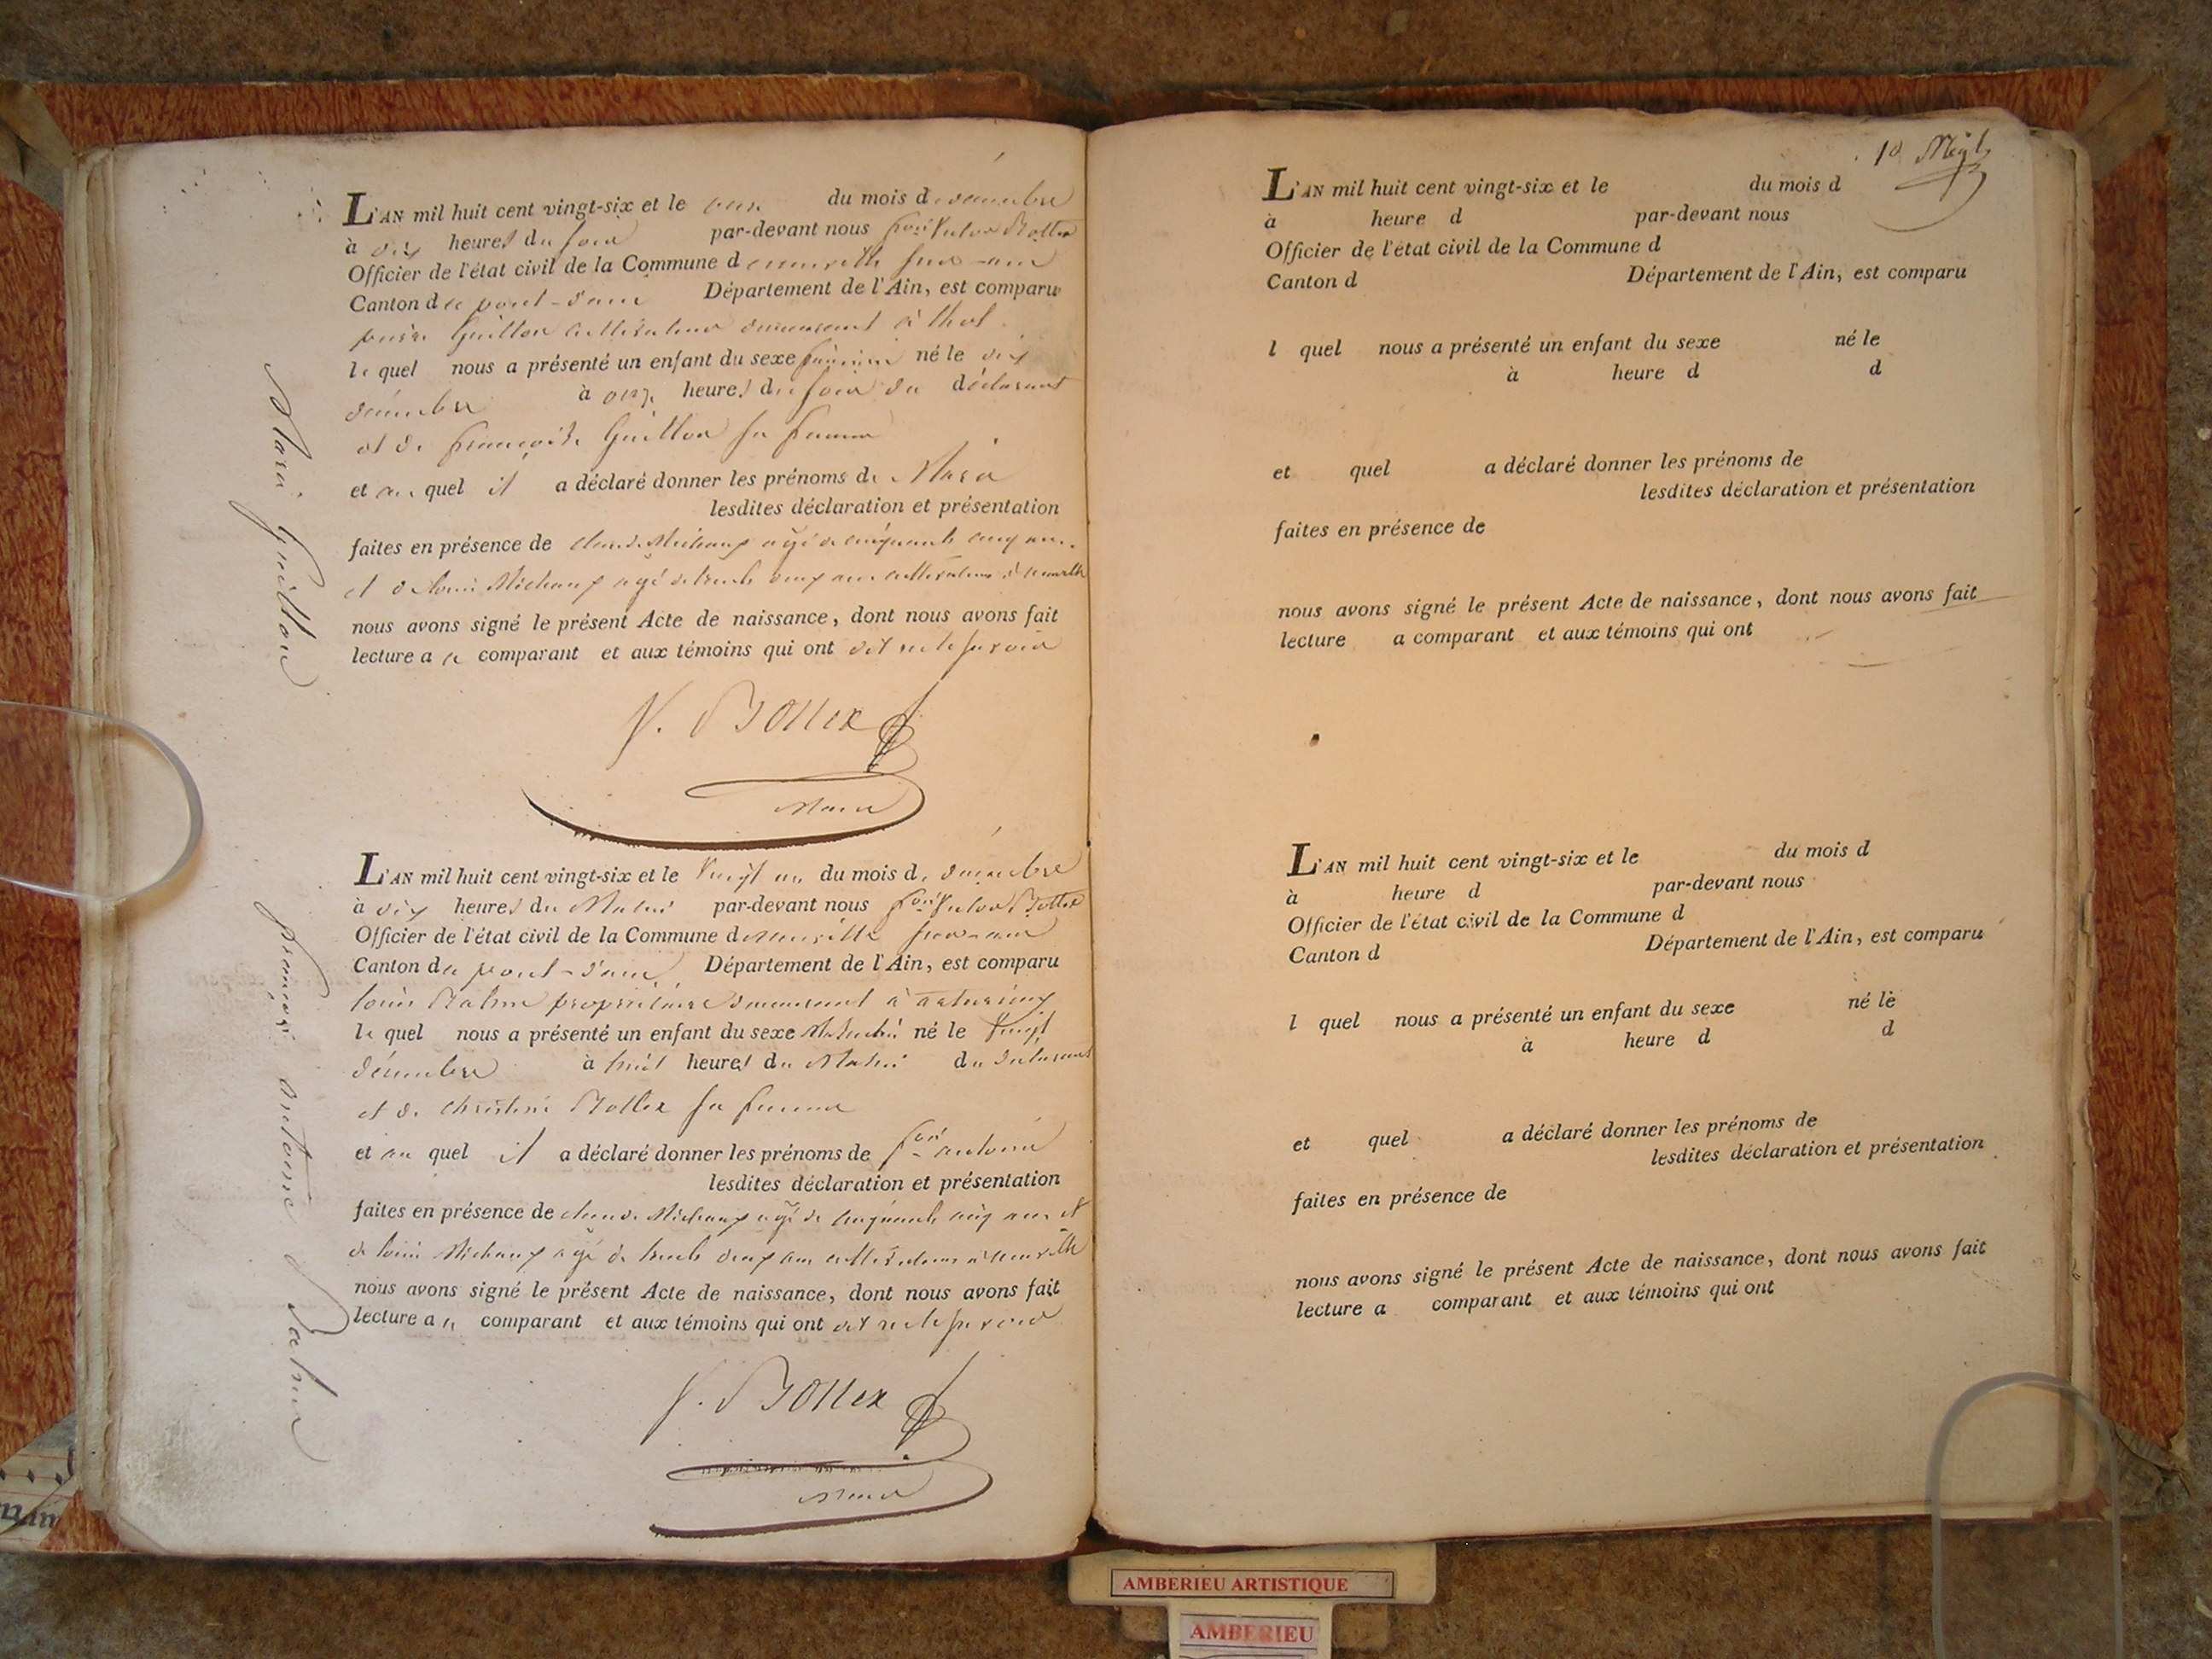 L'AN mil huit cent vingt-six et le onze du mois de décembre
à dix heures du soir par-devant nous fçois Victor Bottex
Officier de l'état civil de la Commune d neuville sur-ain
Canton de pont-d'ain Département de l'Ain, est comparu
Guillon cultivateur demeurant à thol
le quel nous a présenté un enfant du sexe féminin né le dix
décembre à onze heures du soir du déclarant
et de françoise Guillon sa femme
et au quel il a déclaré donner les prénoms de Marie
lesdites déclaration et présentation
faites en présence de claude Michaux agé de cinquante cinq ans
et de louis Michaux agé de trente deux ans cultivateurs à neuville
nous avons signé le présent Acte de naissance, dont nous avons fait
lecture a ce comparant et aux témoins qui ont dit ne le savoir
V. Bottex
Maire
Marie Guillon
L'AN mil huit cent vingt-six et le vingt un du mois de décembre
à dix heures du Matin par-devant nous fçois Victor Bottex
Officier de l'état civil de la Commune de neuville sur-ain
Canton de pont-d'ain Département de l'Ain, est comparu
louis propriétaire demeurant à
le quel nous a présenté un enfant du sexe Masculin né le vingt
décembre à huit heures du Matin du déclarant
et de christine Bottex sa femme
et au quel il a déclaré donner les prénoms de fçois antoine
lesdites déclaration et présentation
faites en présence de claude Michaux agé de cinquante cinq ans et
de louis Michaux agé de trente deux ans cultivateurs à neuville
nous avons signé le présent Acte de naissance, dont nous avons fait
lecture a ce comparant et aux témoins qui ont dit ne le savoir
V. Bottex
Maire
françois antoine
10
L'AN mil huit cent vingt-six et le du mois d
à heure d par-devant nous
Officier de l'état civil de la Commune d
Canton d Département de l'Ain, est comparu
l quel nous a présenté un enfant du sexe né le
à heure d d
et quel a déclaré donner les prénoms de
lesdites déclaration et présentation
faites en présence de
nous avons signé le présent Acte de naissance, dont nous avons fait
lecture a comparant et aux témoins qui ont
L'AN mil huit cent vingt-six et le du mois d
à heure d par-devant nous
Officier de l'état civil de la Commune d
Canton d Département de l'Ain, est comparu
l quel nous a présenté un enfant du sexe né le
à heure d d
et quel a déclaré donner les prénoms de
lesdites déclaration et présentation
faites en présence de
nous avons signé le présent Acte de naissance, dont nous avons fait
lecture a comparant et aux témoins qui ont
AMBERIEU ARTISTIQUE
AMBERIEU